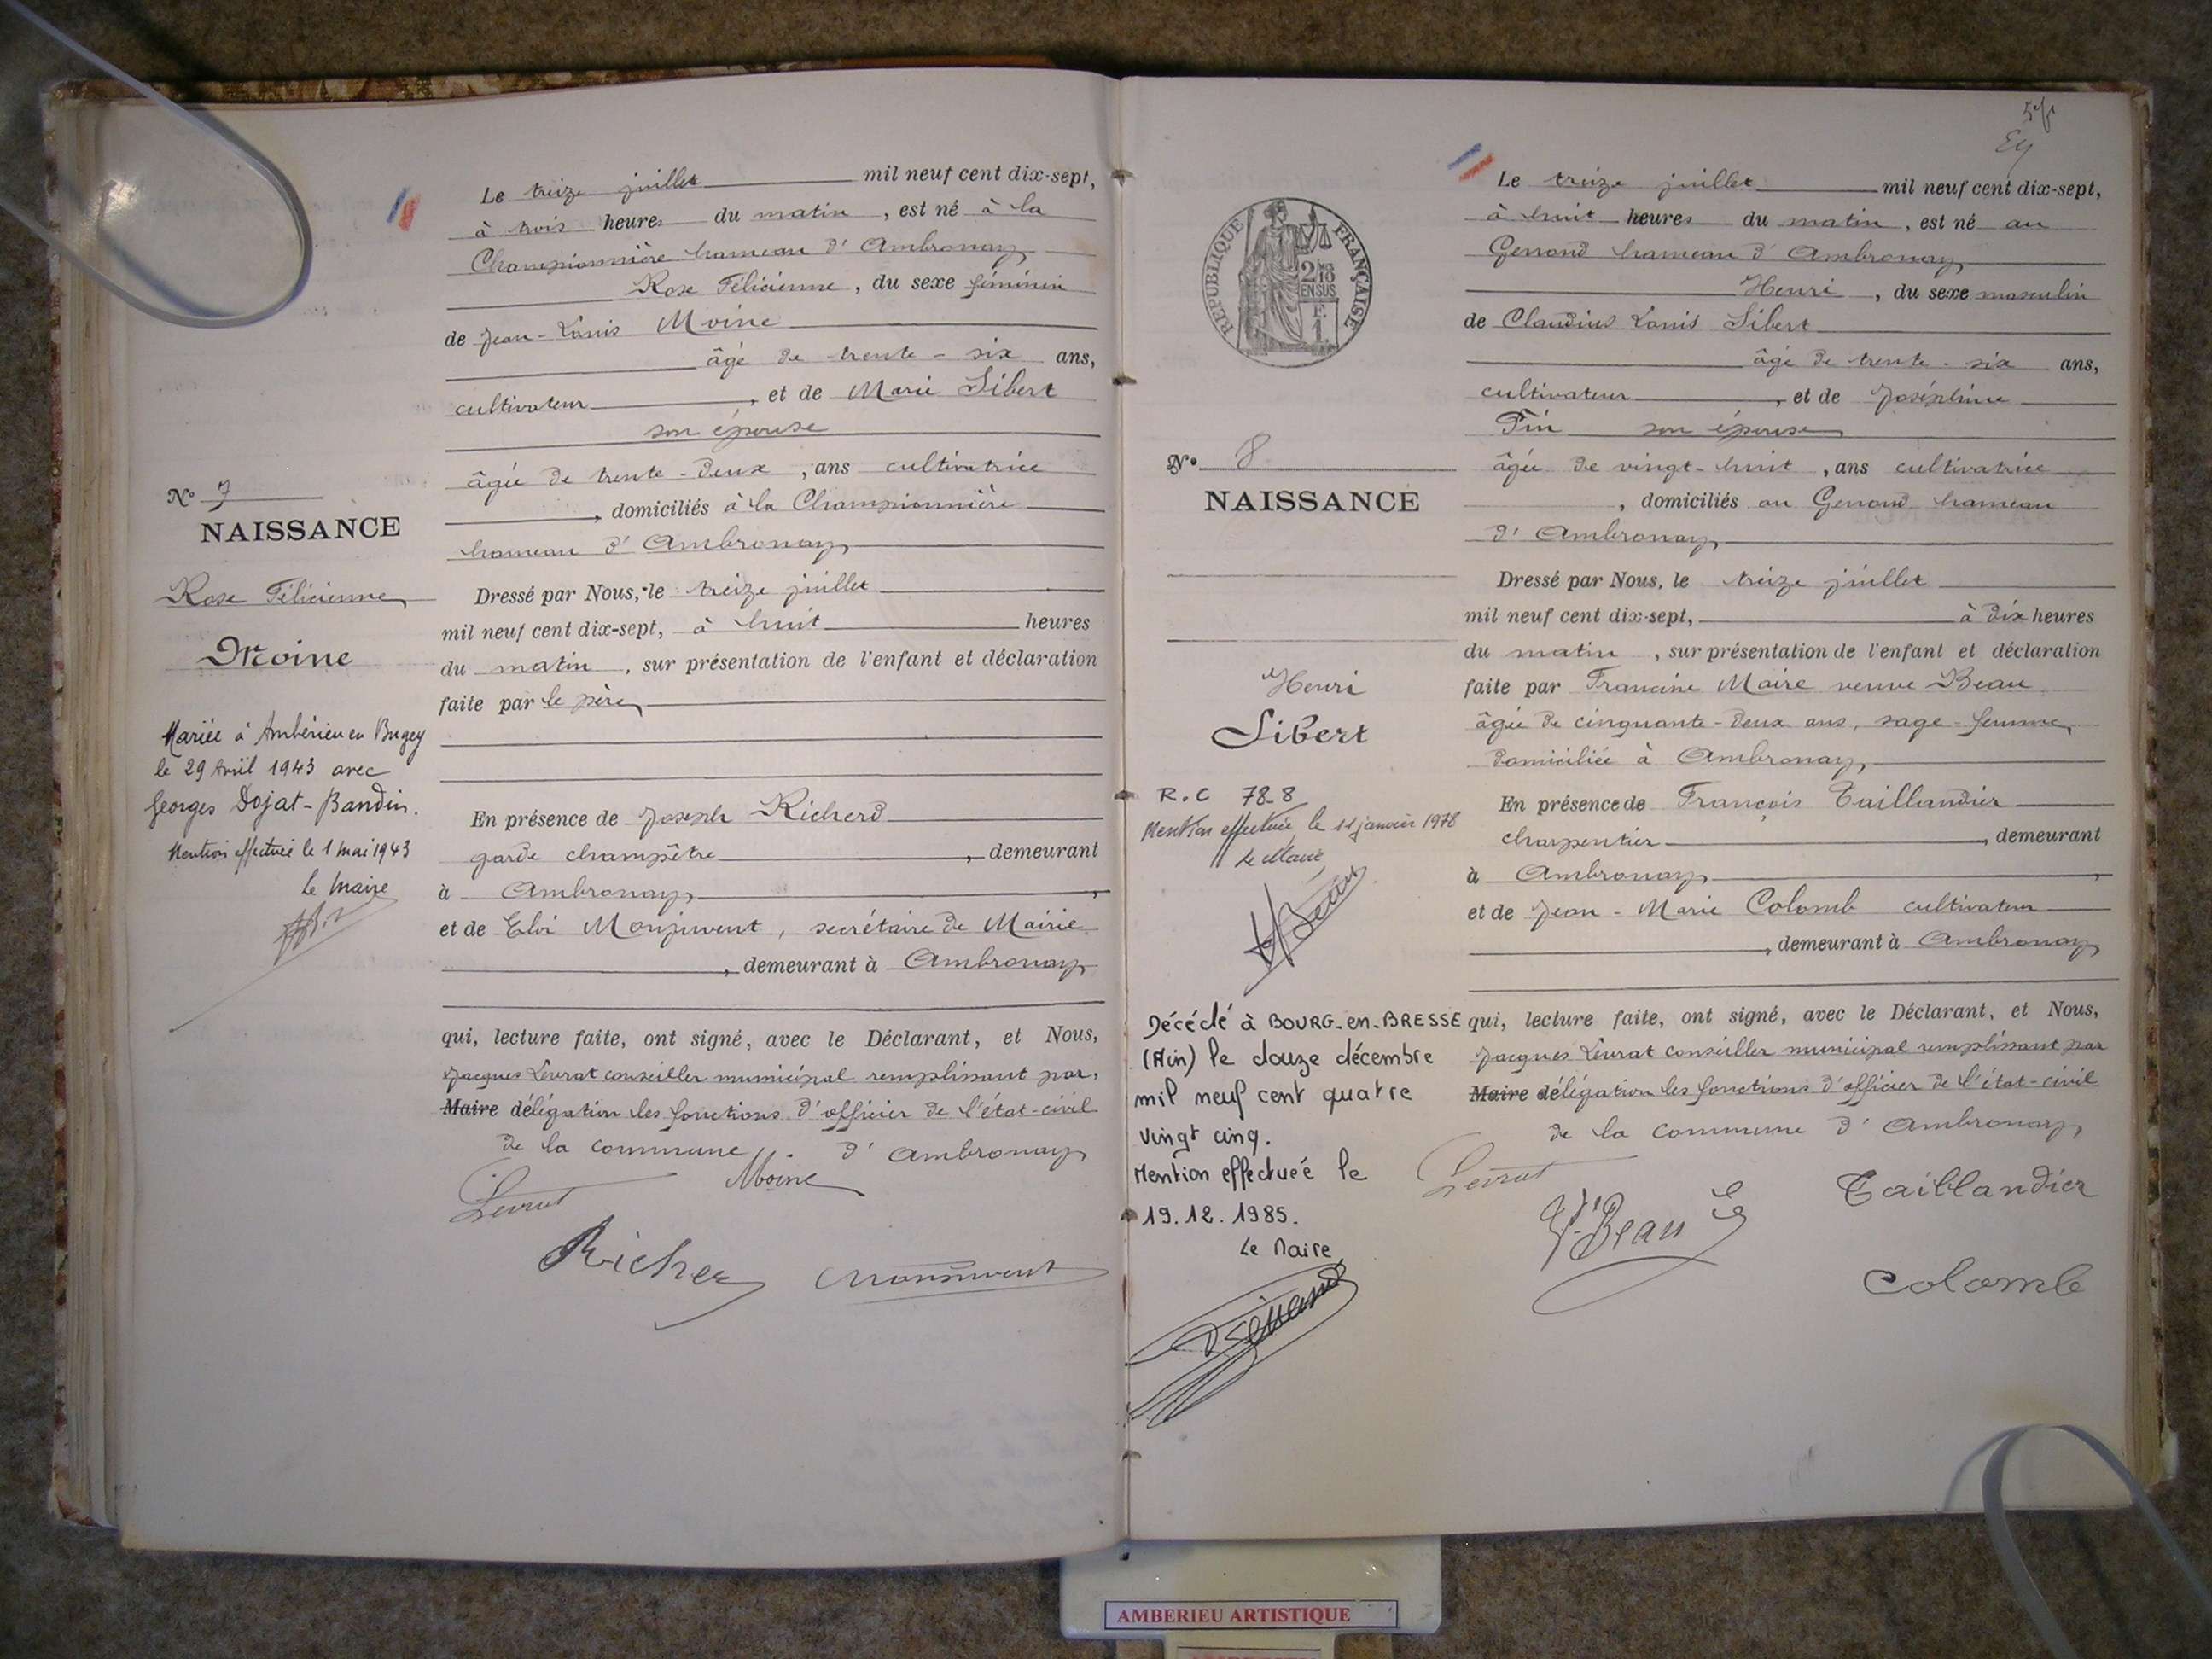 Le treize juillet mil neuf cent dix-sept,
à trois heures du matin, est né à la
Championnière hameau d'Ambronay
Rose Félicienne, du sexe féminin
de Jean-Louis Moine
âgé de trente-six ans,
cultivateur, et de Marie Sibert
son épouse
âgée de trente-deux, ans cultivatrice
, domiciliés à la Championnière
hameau d'Ambronay
Dressé par Nous, le treize juillet
mil neuf cent dix-sept, à huit heures
du matin, sur présentation de l'enfant et déclaration
faite par le père
En présence de Joseph Richerd
garde champêtre, demeurant
à Ambronay,
et de Eloi Monjuvent, secrétaire de Mairie
, demeurant à Ambronay
qui, lecture faite, ont signé, avec le Déclarant, et Nous,
Jacques Levrat conseiller municipal remplissant par
Maire délégation les fonctions d'officier de l'état-civil
de la commune d'Ambronay
Levrat Moine
Richer Monjuvent
No 7
NAISSANCE
Rose Félicienne
Moine
Mariée à Ambérieu en Bugey
le 29 Avril 1943 avec
Georges Dojat-Bandin.
Mention effectuée le 1 mai 1943
Le Maire
RÉPUBLIQUE FRANÇAISE
2/10 EN SUS
F. 1.
No 8
NAISSANCE
Henri
Sibert
R.C 78-8
Mention effectuée le 11 janvier 1978
Le Maire
Décédé à BOURG-en-BRESSE
(Ain) le douze décembre
mil neuf cent quatre
vingt cinq.
Mention effectuée le
19.12.1985.
Le Maire
Le treize juillet mil neuf cent dix-sept,
à huit heures du matin, est né au
Genoud hameau d'Ambronay
Henri, du sexe masculin
de Claudius Louis Sibert
âgé de trente-six ans,
cultivateur, et de Joséphine
Pin son épouse
âgée de vingt-huit, ans cultivatrice
, domiciliés au Genoud hameau
d'Ambronay
Dressé par Nous, le treize juillet
mil neuf cent dix-sept, à dix heures
du matin, sur présentation de l'enfant et déclaration
faite par Francine Maire veuve Beau
âgée de cinquante-deux ans, sage-femme,
domiciliée à Ambronay,
En présence de François Taillandier
charpentier, demeurant
à Ambronay,
et de Jean-Marie Colomb cultivateur
, demeurant à Ambronay
qui, lecture faite, ont signé, avec le Déclarant, et Nous,
Jacques Levrat conseiller municipal remplissant par
Maire délégation les fonctions d'officier de l'état-civil
de la commune d'Ambronay
Levrat Taillandier
Vve Beau
Colomb
AMBERIEU ARTISTIQUE